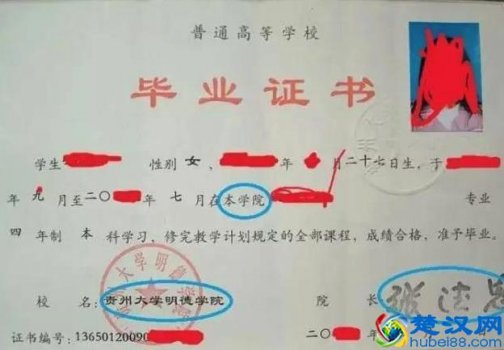 普通高等学校
毕业证书
学生 性别 女, 年 月二十七日生，于
年九月至二〇 年七月在本学院 专业
四年制 本 科学习，修完教学计划规定的全部课程，成绩合格，准予毕业。
校 名：贵州大学明德学院 院 长
证书编号：13650120090 二〇 年
楚汉网
hubei88.com